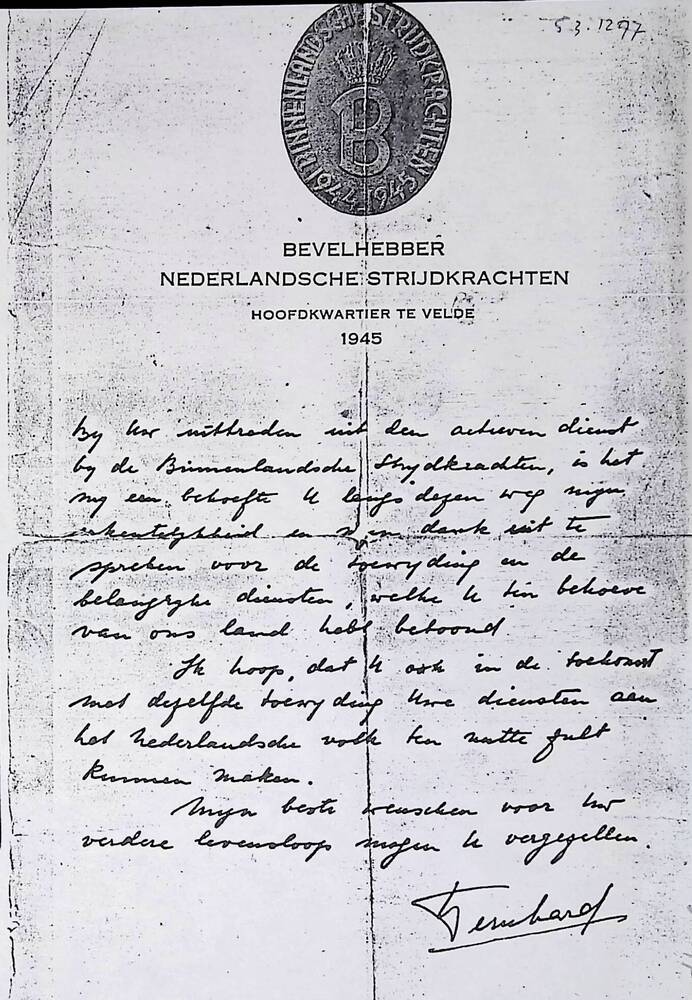 53.1297
BINNENLANDSCHE STRIJDKRACHTEN
B
1944-1945
BEVELHEBBER
NEDERLANDSCHE STRIJDKRACHTEN
HOOFDKWARTIER TE VELDE
1945
By Uw uittreden uit den actieven dienst
by de Binnenlandsche Strydkrachten, is het
my een behoefte U langs dezen weg myn
erkentelykheid en myn dank uit te
spreken voor de toewyding en de
belangryke diensten, welke U ten behoeve
van ons land hebt betoond
Ik hoop, dat U ook in de toekomst
met dezelfde toewyding Uwe diensten aan
het Nederlandsche volk ten nutte zult
kunnen maken.
Myn beste wenschen voor Uw
verdere levensloop mogen U vergezellen.
Bernhard